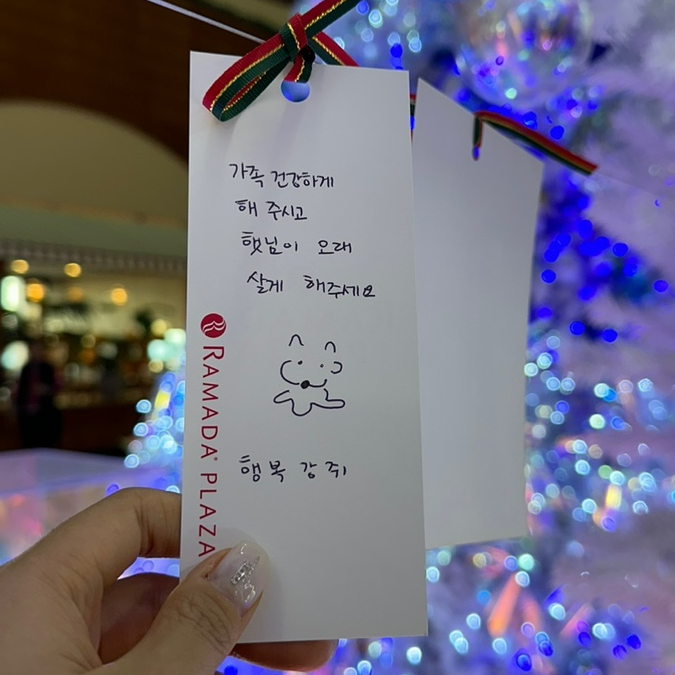 가족 건강하게
해 주시고
햇님이 오래
살게 해주세요
행복 강쥐
RAMADA® PLAZA